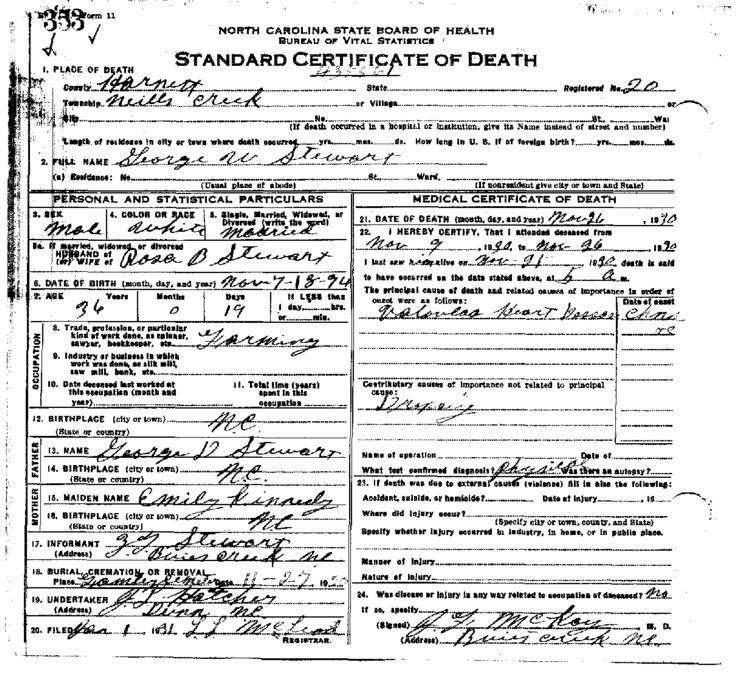 353 Form 11
NORTH CAROLINA STATE BOARD OF HEALTH
BUREAU OF VITAL STATISTICS
STANDARD CERTIFICATE OF DEATH
1. PLACE OF DEATH
County Harnett State Registered No. 20
Township Neills Creek or Village or
City No. St. Wa
(If death occurred in a hospital or institution, give its Name instead of street and number)
Length of residence in city or town where death occurred yrs. mos. ds. How long in U. S. if of foreign birth? yrs. mos. ds.
2. FULL NAME George W Stewart
(a) Residence: No. St. Ward.
(Usual place of abode) (If nonresident give city or town and State)
PERSONAL AND STATISTICAL PARTICULARS
3. SEX 4. COLOR OR RACE 5. Single, Married, Widowed, or Divorced (write the word)
Male White Married
5a. If married, widowed, or divorced
HUSBAND of
(or) WIFE of Rosa B Stewart
6. DATE OF BIRTH (month, day, and year) Nov-7-18-94
7. AGE Years Months Days If LESS than
36 0 19 1 day hrs.
or min.
8. Trade, profession, or particular
kind of work done, as spinner,
sawyer, bookkeeper, etc. Farming
9. Industry or business in which
work was done, as silk mill,
saw mill, bank, etc.
10. Date deceased last worked at
this occupation (month and
year)
11. Total time (years)
spent in this
occupation
OCCUPATION
12. BIRTHPLACE (city or town) NC
(State or country)
FATHER
13. NAME George D Stewart
14. BIRTHPLACE (city or town) NC
(State or country)
MOTHER
15. MAIDEN NAME Emily Kennedy
16. BIRTHPLACE (city or town) NC
(State or country)
17. INFORMANT Stewart
(Address) Buies Creek NC
18. BURIAL, CREMATION, OR REMOVAL
Place Date 11-27, 1930
19. UNDERTAKER Hatcher
(Address) Dunn NC
20. FILED Jan 1 1931 McLeod
REGISTRAR.
MEDICAL CERTIFICATE OF DEATH
21. DATE OF DEATH (month, day, and year) Nov 26, 1930
22. I HEREBY CERTIFY, That I attended deceased from
Nov 9, 1930, to Nov 26, 1930
I last saw h alive on Nov 21, 1930, death is said
to have occurred on the date stated above, at 6 a m.
The principal cause of death and related causes of importance in order of
onset were as follows: Date of onset
Heart
Contributory causes of importance not related to principal
cause:
Dropsy
Name of operation Date of
What test confirmed diagnosis? Was there an autopsy?
23. If death was due to external causes (violence) fill in also the following:
Accident, suicide, or homicide? Date of injury , 19
Where did injury occur?
(Specify city or town, county, and State)
Specify whether injury occurred in industry, in home, or in public place.
Manner of Injury
Nature of Injury
24. Was disease or injury in any way related to occupation of deceased? No
If so, specify
(Signed) McKay M. D.
(Address) Buies Creek NC